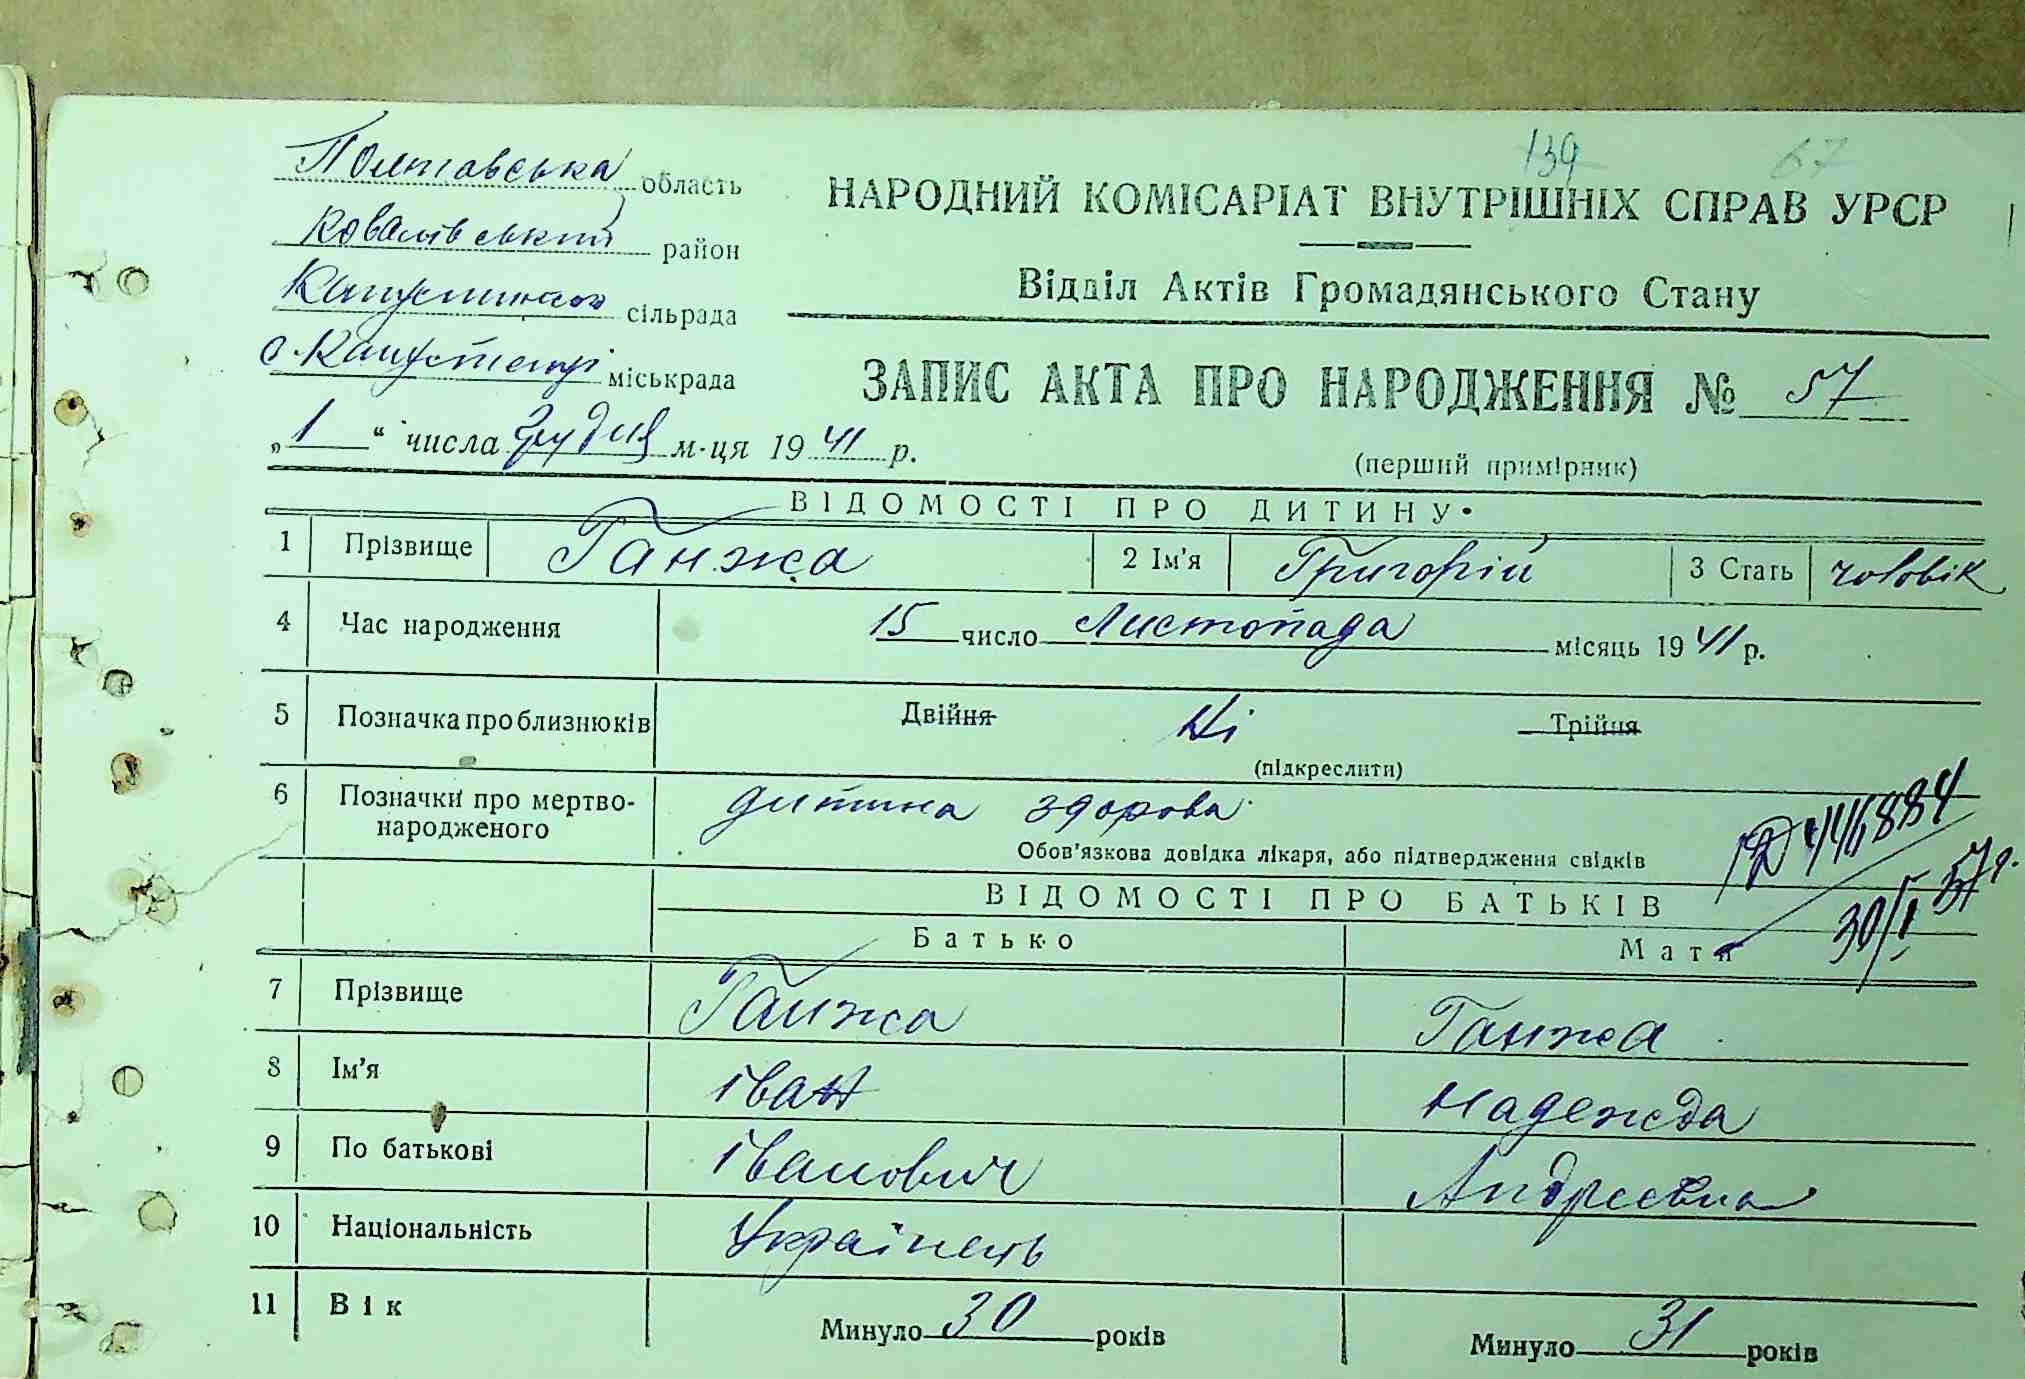 139 67
Полтавська область
НАРОДНИЙ КОМІСАРІАТ ВНУТРІШНІХ СПРАВ УРСР
Ковалівський район
Відділ Актів Громадянського Стану
Капустинська сільрада
с. Капустенці міськрада
ЗАПИС АКТА ПРО НАРОДЖЕННЯ № 57
„1“ числа грудня м-ця 1941 р.
(перший примірник)
ВІДОМОСТІ ПРО ДИТИНУ
1 Прізвище Ганжа 2 Ім'я Григорій 3 Стать чоловік
4 Час народження 15 число Листопада місяць 1941 р.
5 Позначка про близнюків Двійня Ні Трійня
(підкреслити)
6 Позначки про мертво-
народженого дитина здорова
Обов'язкова довідка лікаря, або підтвердження свідків
30/I 57 р.
ВІДОМОСТІ ПРО БАТЬКІВ
Батько Мати
7 Прізвище Ганжа Ганжа
8 Ім'я іван Надежда
9 По батькові іванович Андреевна
10 Національність Українець
11 Вік Минуло 30 років Минуло 31 років